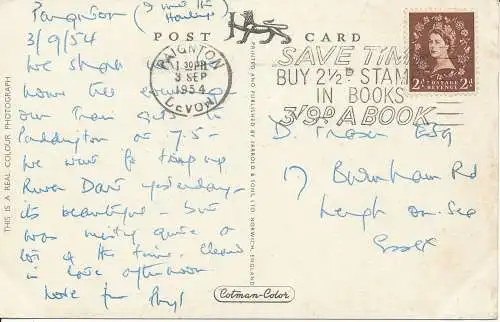 Paignton (I won't the
3/9/54
We
home the evening
our Train gets in
Paddington at 7.5 -
We went for trip up
River Dart yesterday -
its beautiful - but
was misty quite a
lot of the time. Cleared
in late afternoon
Love from Phyl
POST CARD
PAIGNTON
1 30PM
3 SEP
1954
DEVON
SAVE TIME
BUY 2½D STAMPS
IN BOOKS
3/9D A BOOK
2D POSTAGE REVENUE 2D
D. Fraser Esq
17 Burnham Rd
Leigh on Sea
Essex
THIS IS A REAL COLOUR PHOTOGRAPH
PRINTED AND PUBLISHED BY JARROLD & SONS, LTD. NORWICH, ENGLAND
Cotman-Color